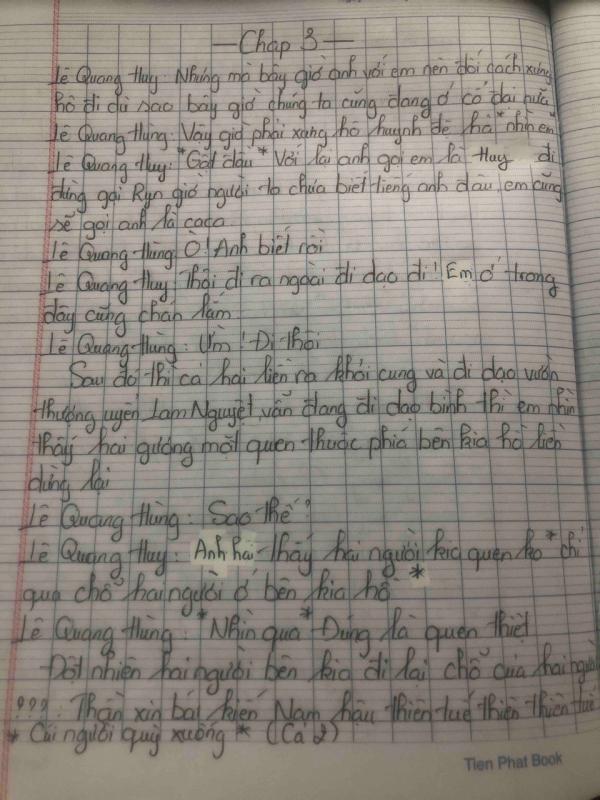 — Chap 3 —
Lê Quang Huy: Nhưng mà bây giờ anh với em nên đổi cách xưng
hô đi dù sao bây giờ chúng ta cũng đang ở cổ đại nữa
Lê Quang Hùng: Vậy giờ phải xưng hô huynh đệ hả *nhìn em*
Lê Quang Huy: *Gật đầu* Với lại anh gọi em là Huy đi
đừng gọi Ryn giờ người ta chưa biết tiếng anh đâu, em cũng
sẽ gọi anh là caca
Lê Quang Hùng: Ò! Anh biết rồi
Lê Quang Huy: Thôi đi ra ngoài đi dạo đi! Em ở trong
đây cũng chán lắm
Lê Quang Hùng: Ừm! Đi thôi
Sau đó thì cả hai liền ra khỏi cung và đi dạo vườn
thượng uyển Lam Nguyệt, vẫn đang đi dạo bình thì em nhìn
thấy hai gương mặt quen thuộc phía bên kia hồ liền
dừng lại
Lê Quang Hùng: Sao thế?
Lê Quang Huy: Anh hai thấy hai người kia quen ko *chỉ
qua chỗ hai người ở bên kia hồ*
Lê Quang Hùng: *Nhìn qua* Đúng là quen thiệt
Đột nhiên hai người bên kia đi lại chỗ của hai người
???: Thần xin bái kiến Nam hậu thiên tuế thiên thiên tuế
* Cúi người quỳ xuống * (Cả 2)
Tien Phat Book